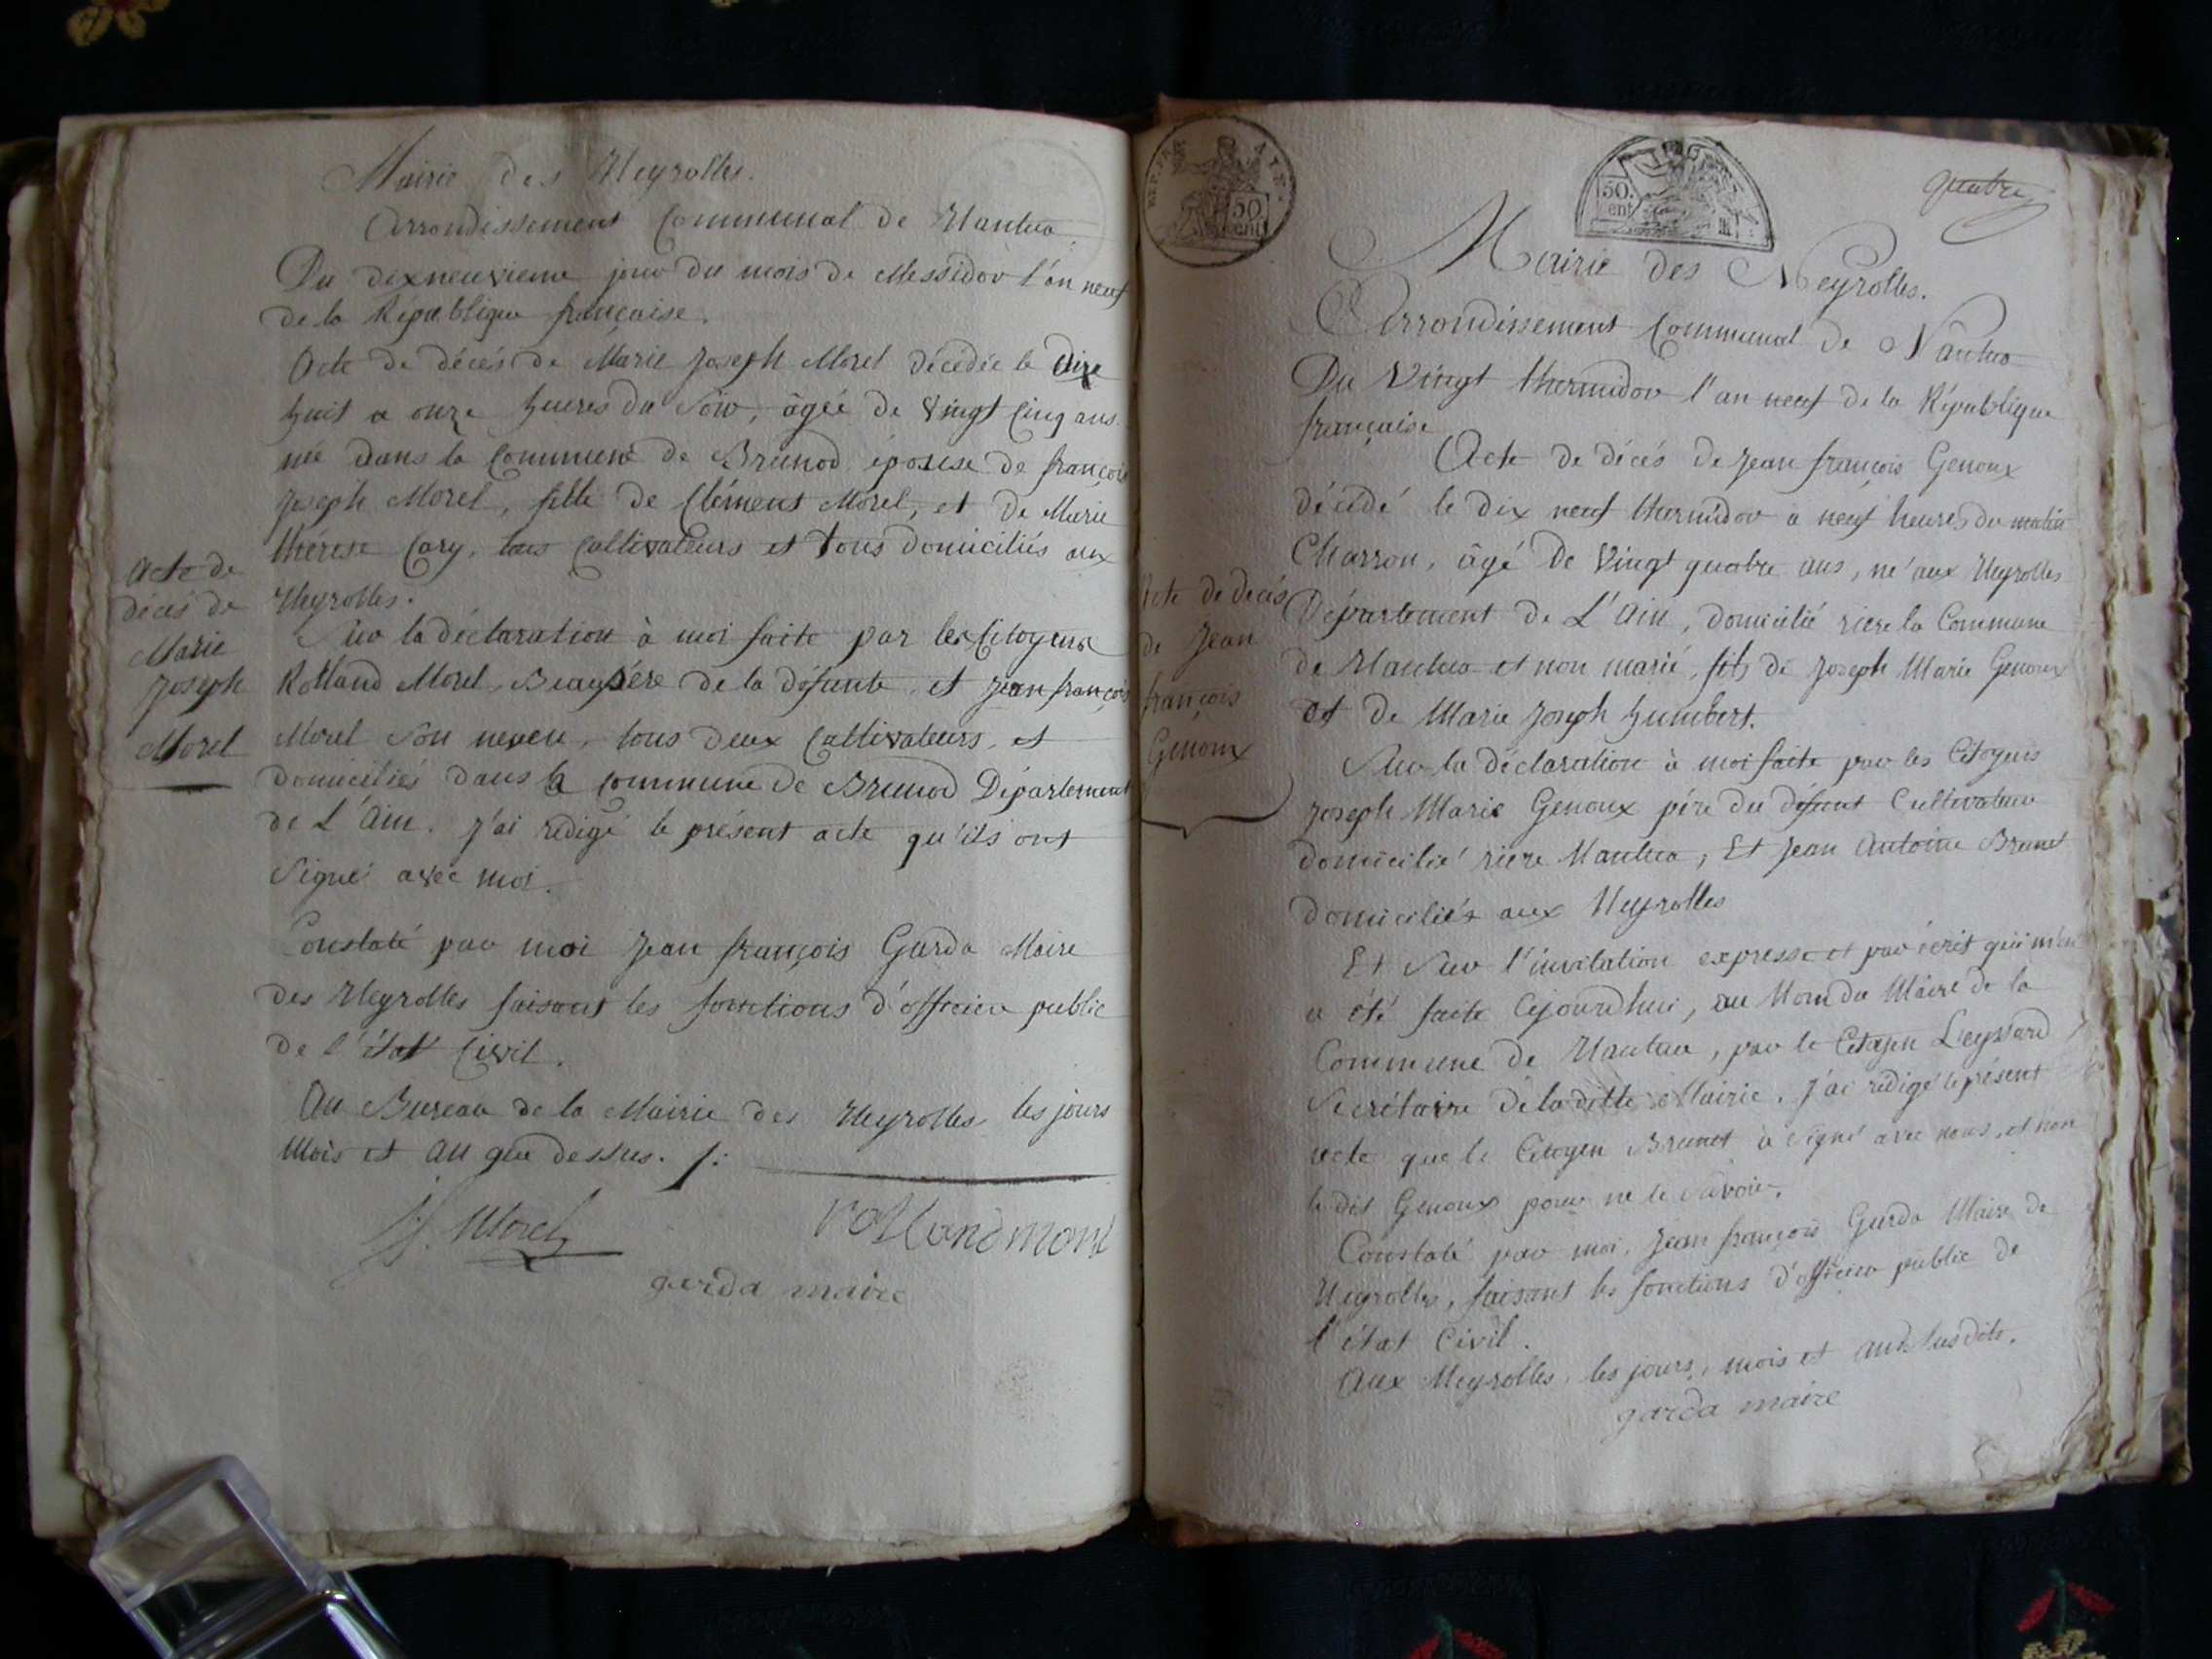 Mairie des Neyrolles.
Arrondissement Communal de Nantua
Du dixneuvieme jour du mois de Messidor l'an neuf
de la République française.
Acte de décés de Marie Joseph Morel décédée le dixe
huit a onze heures du Soir, âgée de Vingt Cinq ans
née dans la Commune de Brénod, épouse de françois
Joseph Morel, fille de Clément Morel, et de Marie
thérese Cary, tous Cultivateurs et tous domiciliés aux
Neyrolles.
Sur la déclaration à moi faite par les Citoyens
Rolland Morel, Beaupére de la défunte, et Jean françois
Morel Son neveu, tous deux Cultivateurs, et
domiciliés dans la commune de Brenod Département
de L'Ain. J'ai redigé le présent acte qu'ils ont
Signé avec moi.
Constaté par moi Jean françois Garda Maire
des Neyrolles faisant les fonctions d'officier public
de l'état Civil.
Au Bureau de la Mairie des Neyrolles les jours
Mois et an que dessus. /:
J f. Morel
rolland morel
garda maire
Acte de
décés de
Marie
Joseph
Morel
REP. FRA
50
cent
50.
cent
quatre
Mairie des Neyrolles.
Arrondissement Communal de Nântua
Du Vingt thermidor l'an neuf de la République
française
Acte de décés de Jean françois Genoux
décédé le dix neuf thermidor a neuf heures du matin
Charron, âgé de Vingt quatre ans, né aux Neyrolles
Département de L'Ain, domicilié riere la Commune
de Nantua et non marié, fils de Joseph Marie Genoux
et de Marie Joseph humbert.
Sur la déclaration à moi faite par les Citoyens
Joseph Marie Genoux pére du défunt Cultivateur
domicilié riere Nantua, Et Jean Antoine Brunet
domiciliés aux Neyrolles
Et Sur l'invitation expresse et par écrit qui m'en
a été faite Cejourdhui, au Nom du Maire de la
Commune de Nantua, par le Citoyen Leyssard
Secrétaire de la ditte Mairie. J'ai rédigé le présent
acte que le Citoyen Brunet a Signé avec nous, et non
le dit Genoux pour ne le Savoir.
Constaté par moi, Jean françois Garda Maire de
Neyrolles, faisant les fonctions d'officier public de
l'état Civil.
Aux Neyrolles, les jours, mois et ans Susdits.
garda maire
Acte de decés
de Jean
françois
Genoux